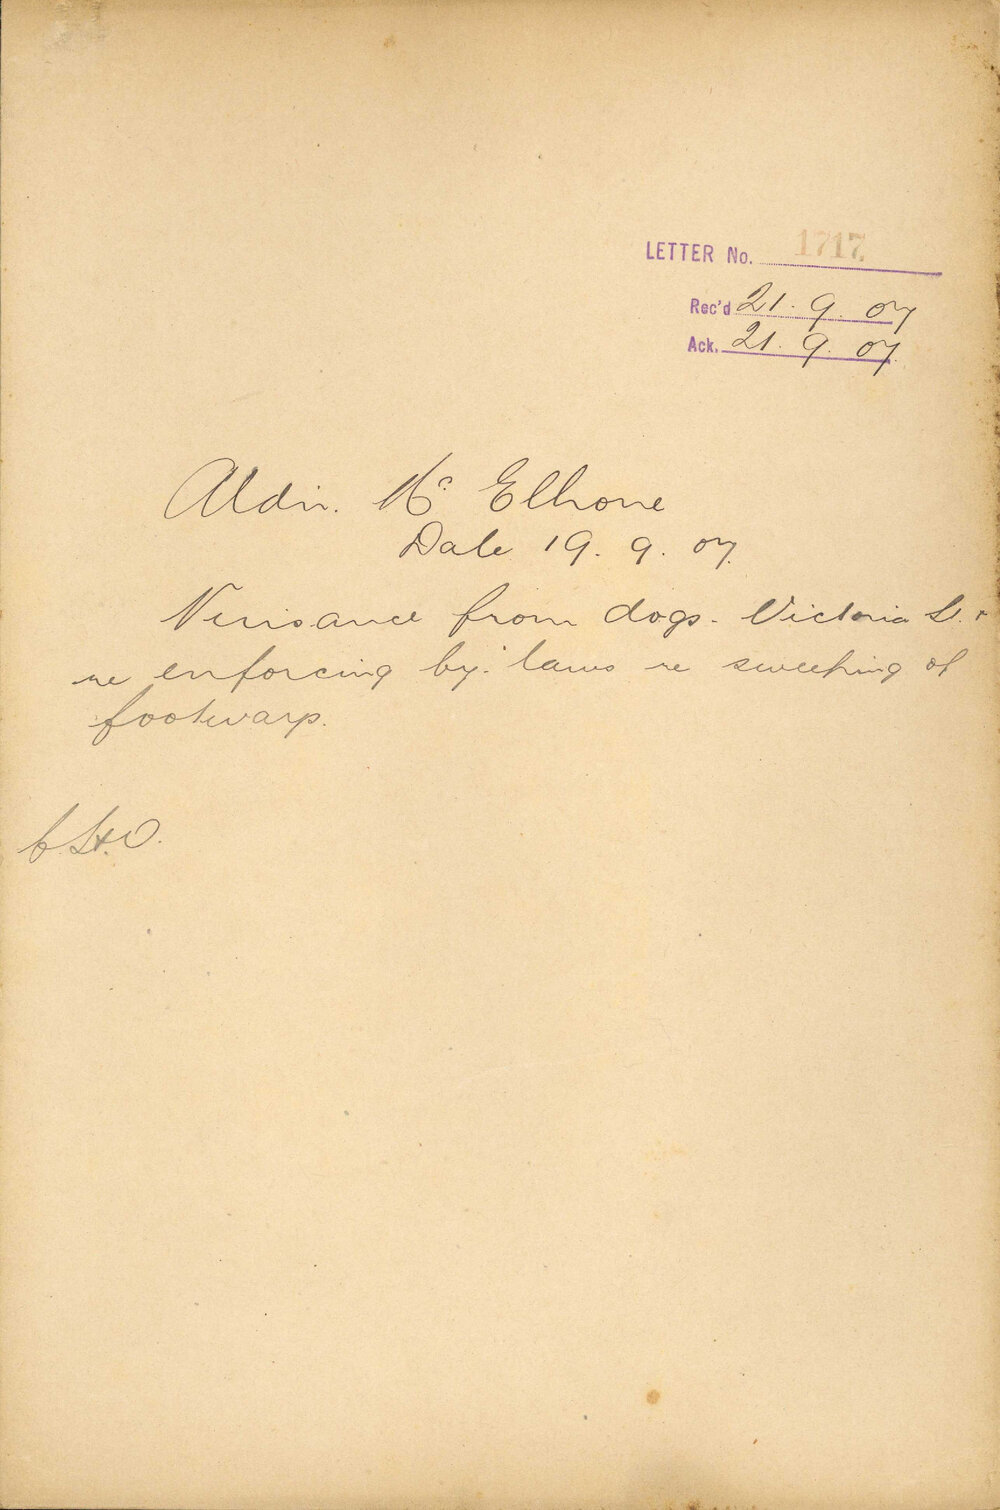 LETTER No. 1717
Rec'd 21. 9. 07
Ack. 21. 9. 07
Aldn. Mc Elhone
Date 19. 9. 07.
Nuisance from dogs. Victoria St. &
re enforcing by-laws re sweeping of
footways.
C.H.O.